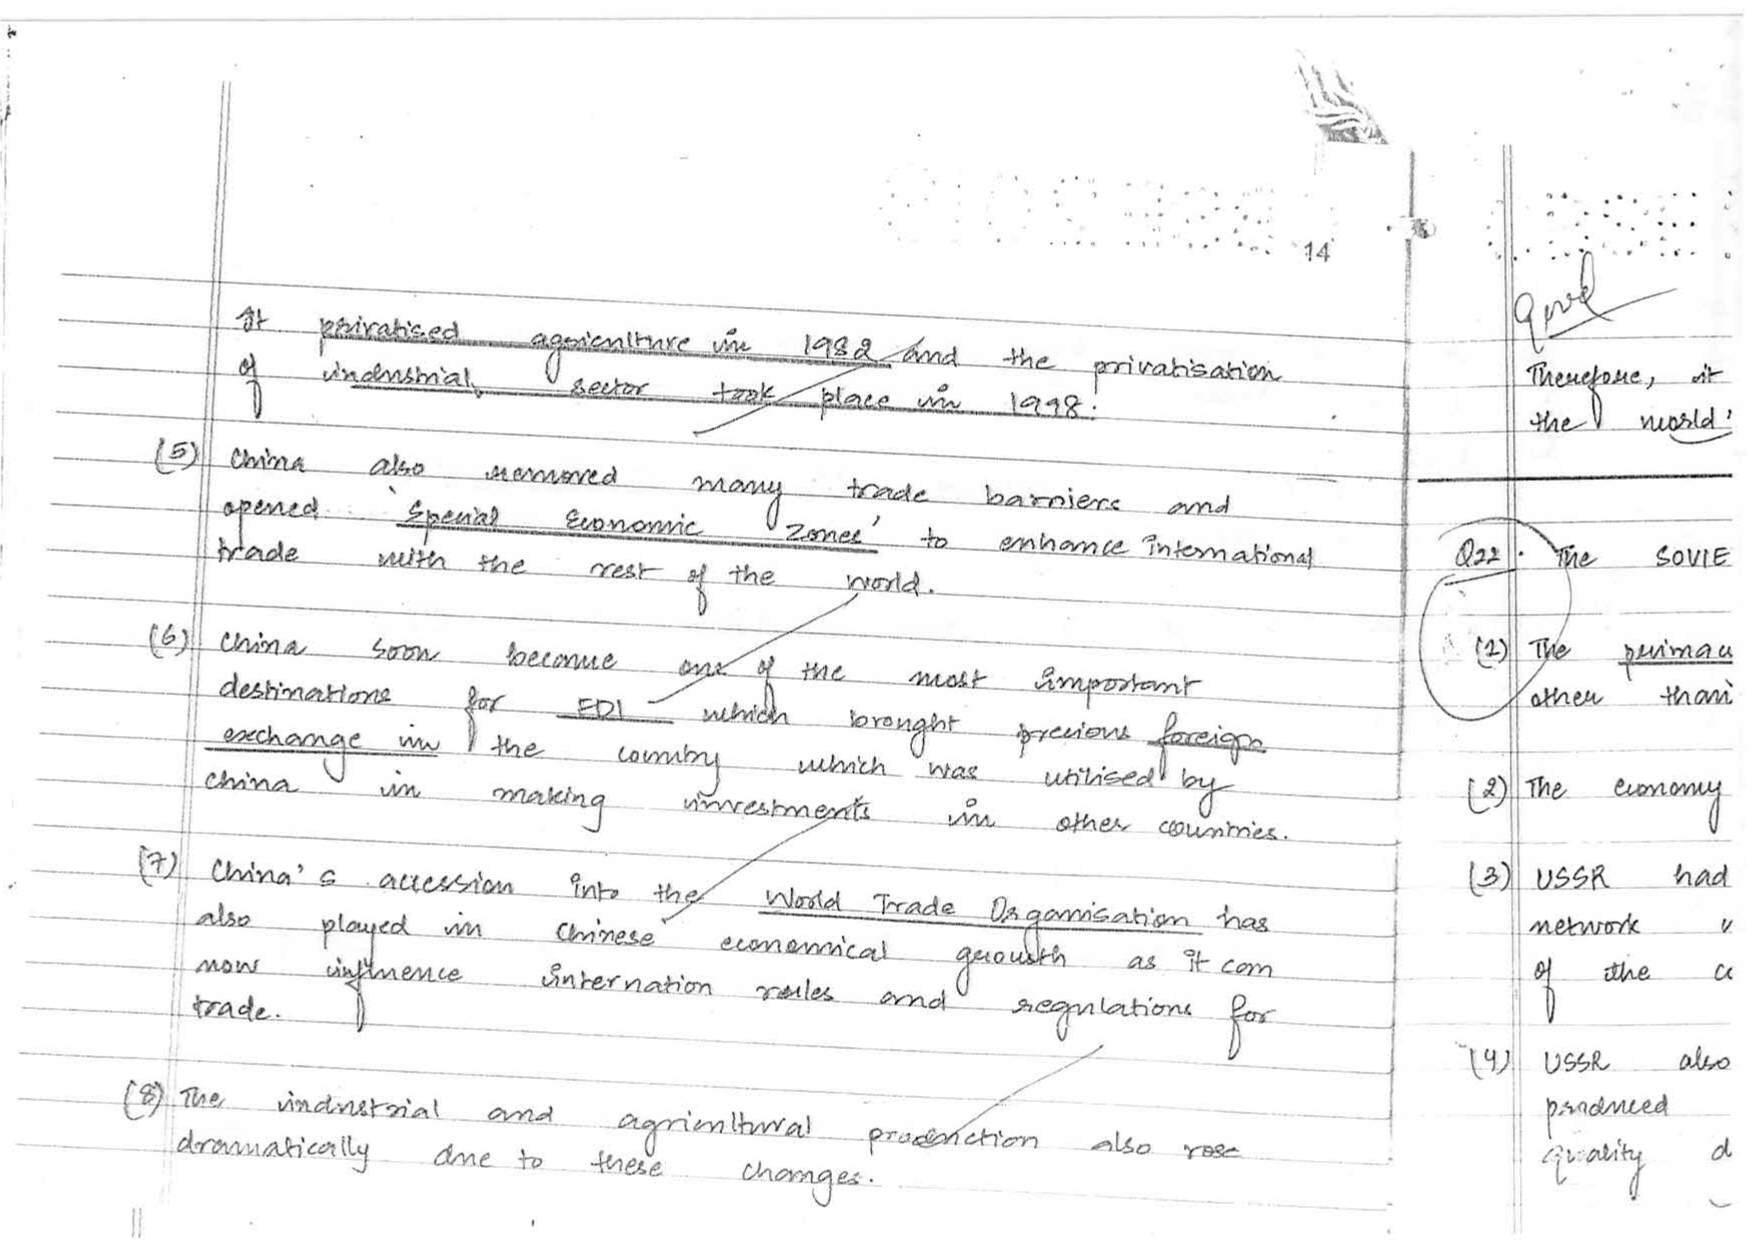 14
It privatised agriculture in 1982 and the privatisation
of industrial sector took place in 1998.
(5) China also removed many trade barriers and
opened 'Special Economic Zones' to enhance international
trade with the rest of the world.
(6) China soon became one of the most important
destinations for FDI which brought precious foreign
exchange in the country which was utilised by
China in making investments in other countries.
(7) China's accession into the World Trade Organisation has
also played in Chinese economical growth as it can
now influence internation rules and regulations for
trade.
(8) The industrial and agricultural production also rose
dramatically due to these changes.
Good
Therefore, it
the world'
Q22. The SOVIE
(1) The primar
other than
(2) The economy
(3) USSR had
network
of the
(4) USSR also
produced
quality d